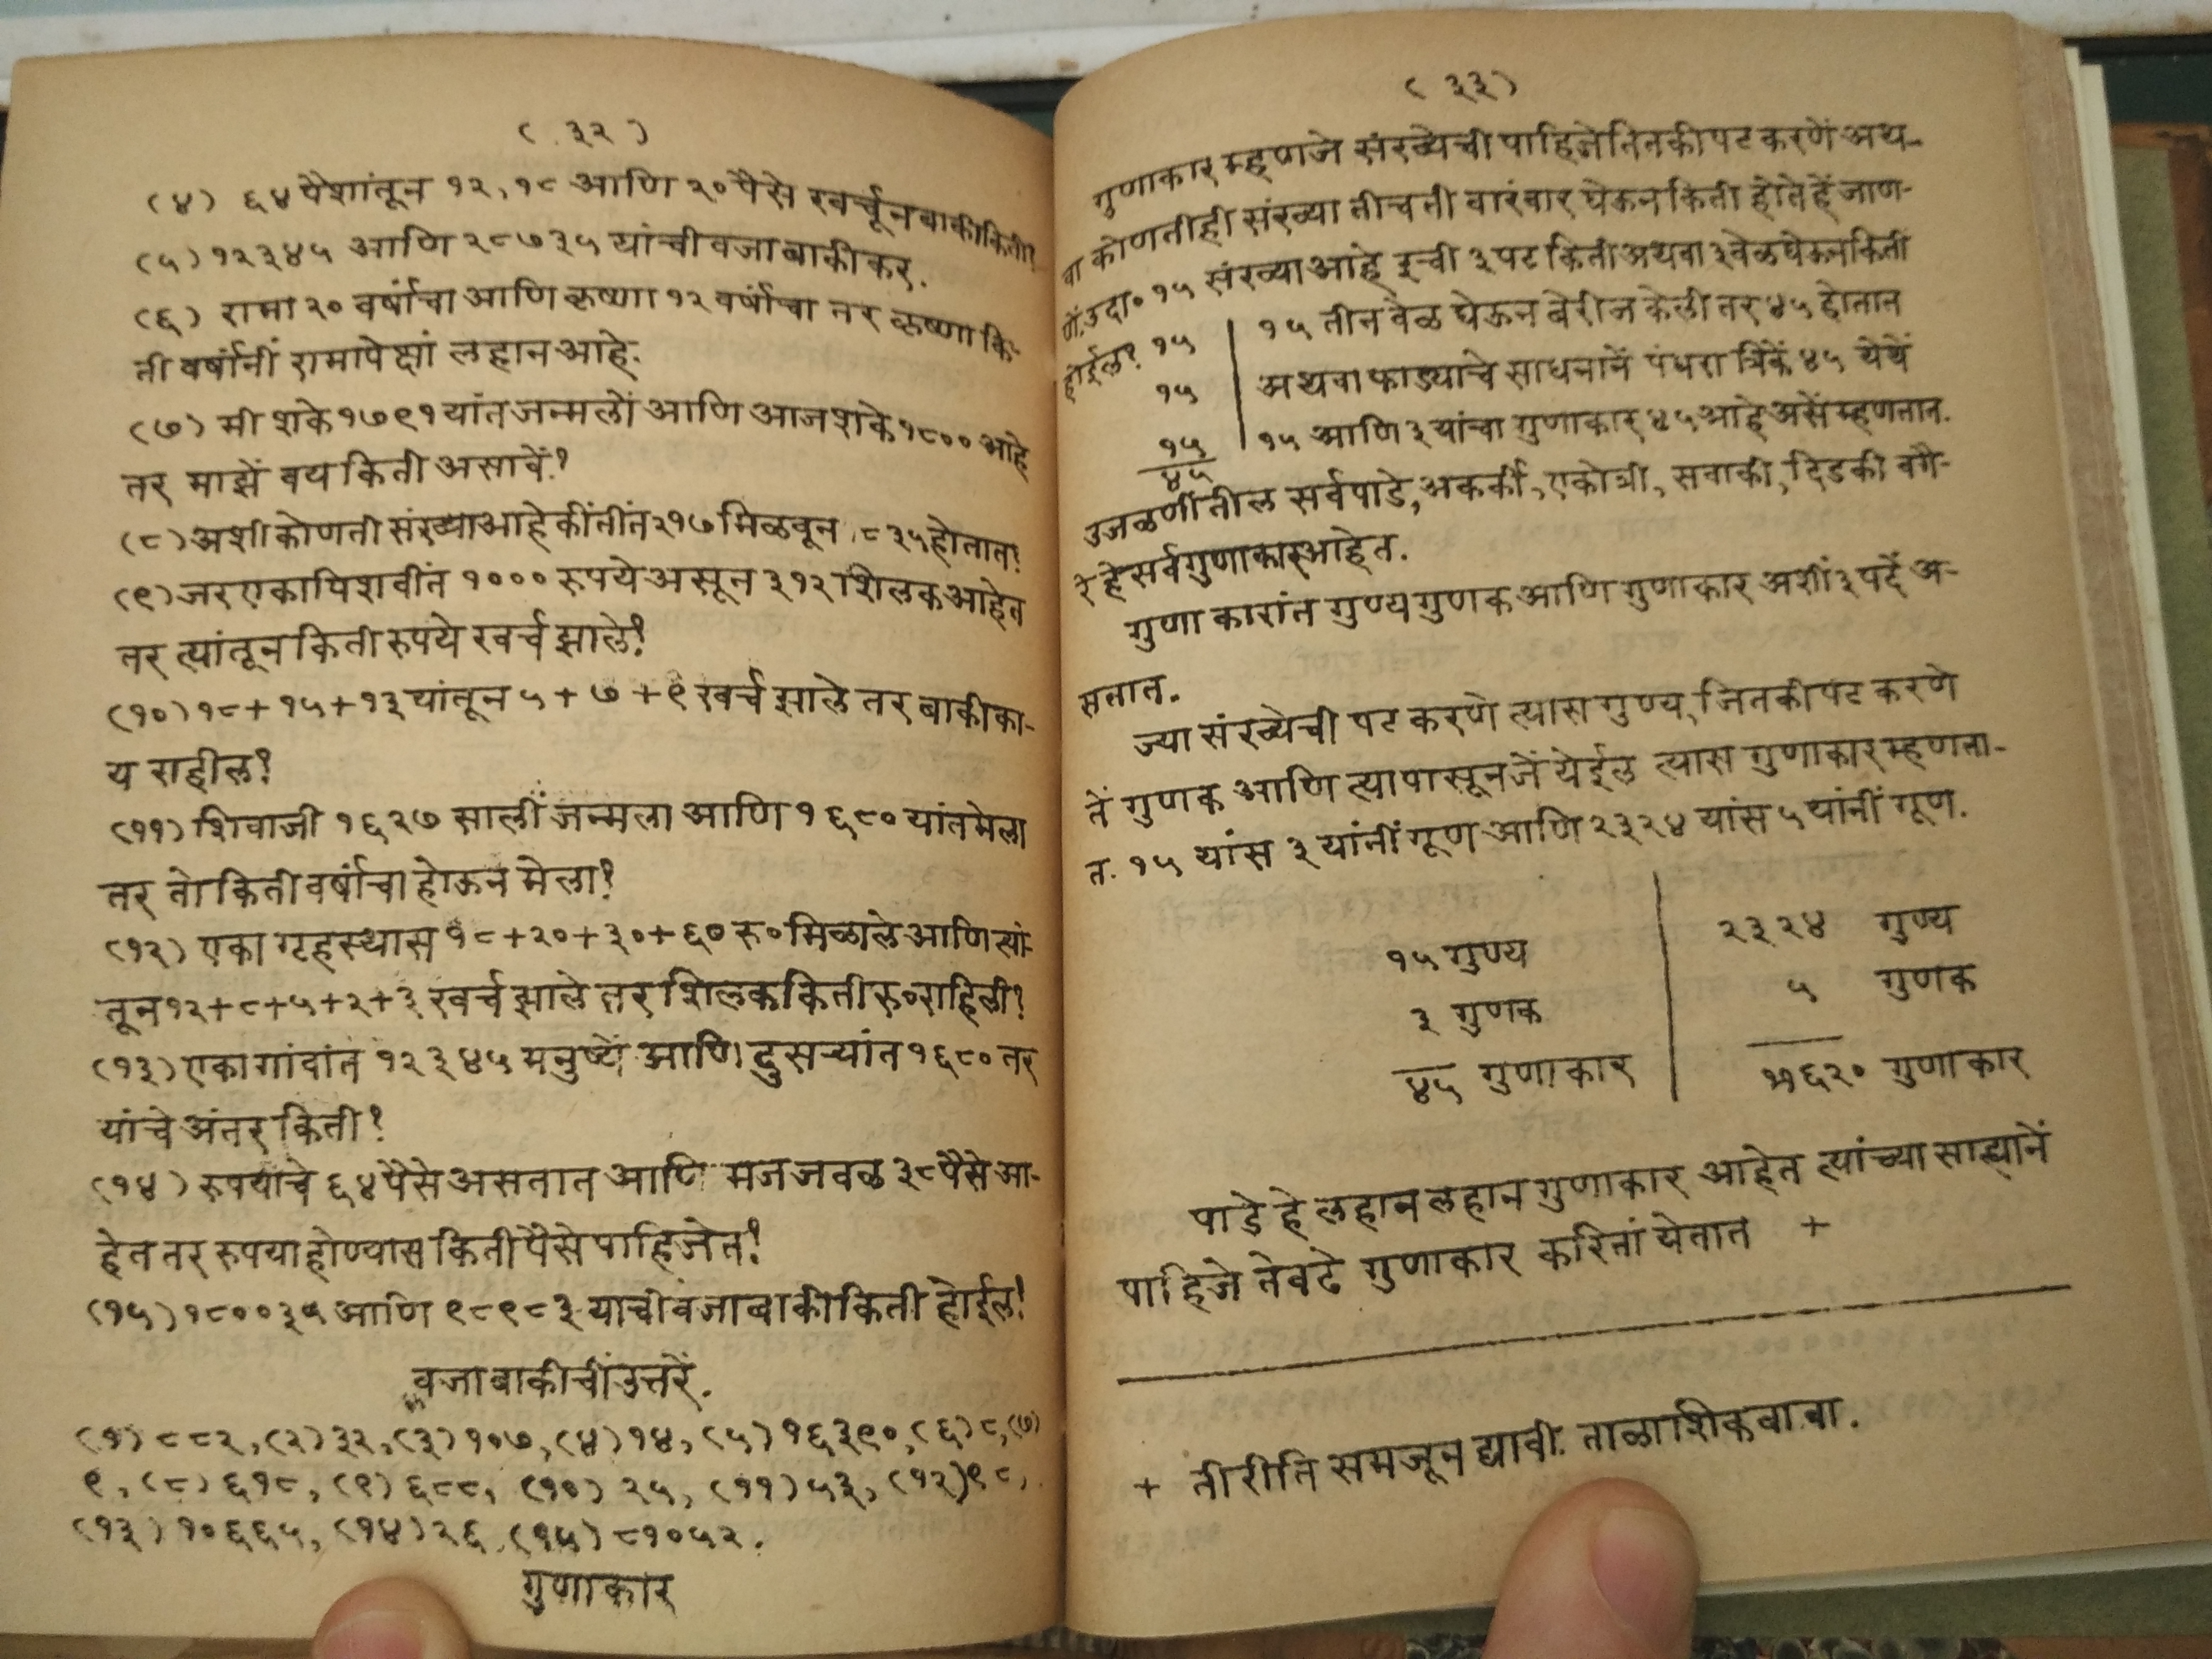 ( ३२ )
(४) ६४ पैशांतून १२, १८ आणि २० पैसे खर्चून बाकी किती?
(५) १२३४५ आणि २८७३५ यांची वजाबाकी कर.
(६) रामा २० वर्षांचा आणि कृष्णा १२ वर्षांचा तर कृष्णा कि-
ती वर्षांनीं रामापेक्षां लहान आहे.
(७) मी शके १७९१ यांत जन्मलों आणि आज शके १८०० आहे
तर माझें वय किती असावें?
(८) अशी कोणती संख्या आहे कीं तींत २१७ मिळवून ८३५ होतात?
(९) जर एका पिशवींत १००० रुपये असून ३१२ शिलक आहेत
तर त्यांतून किती रुपये खर्च झाले?
(१०) १८ + १५ + १३ यांतून ५ + ७ + ९ खर्च झाले तर बाकी का-
य राहील?
(११) शिवाजी १६२७ सालीं जन्मला आणि १६८० यांत मेला
तर तो किती वर्षांचा होऊन मेला?
(१२) एका गृहस्थास १८+२०+३०+६० रु० मिळाले आणि त्यां-
तून १२+८+५+२+३ खर्च झाले तर शिलक किती रु० राहिली?
(१३) एका गांवांत १२३४५ मनुष्यें आणि दुसऱ्यांत १६८० तर
यांचे अंतर किती?
(१४) रुपयाचे ६४ पैसे असतात आणि मजजवळ ३८ पैसे आ-
हेत तर रुपया होण्यास किती पैसे पाहिजेत?
(१५) १८००३५ आणि ९८९८३ याची वजाबाकी किती होईल?
वजाबाकीचीं उत्तरें.
(१) ८८२, (२) ३२, (३) १०७, (४) १४, (५) १६३९०, (६) ८, (७)
९, (८) ६१८, (९) ६८८, (१०) २५, (११) ५३, (१२) ९८,
(१३) १०६६५, (१४) २६, (१५) ८१०५२.
गुणाकार
( ३३ )
गुणाकार म्हणजे संख्येची पाहिजे तितकी पट करणें अथ-
वा कोणतीही संख्या तीच ती वारंवार घेऊन किती होते हें जाण-
णें. उदा० १५ संख्या आहे इची ३ पट किती अथवा ३ वेळ घेऊन किती
होईल? १५ | १५ तीन वेळ घेऊन बेरीज केली तर ४५ होतात
१५ | अथवा फाड्याचे साधनानें पंधरा त्रिकें ४५ येथें
१५ | १५ आणि ३ यांचा गुणाकार ४५ आहे असें म्हणतात.
४५
उजळणींतील सर्व पाडे, अकर्की, एकोत्री, सवाकी, दिडकी वगै-
रे हे सर्व गुणाकार आहेत.
गुणाकारांत गुण्य गुणक आणि गुणाकार अशीं ३ पदें अ-
सतात.
ज्या संख्येची पट करणे त्यास गुण्य, जितकी पट करणे
तें गुणक आणि त्यापासून जें येईल त्यास गुणाकार म्हणता-
त. १५ यांस ३ यांनीं गूण आणि २३२४ यांस ५ यांनीं गूण.
१५ गुण्य | २३२४ गुण्य
३ गुणक | ५ गुणक
४५ गुणाकार | ११६२० गुणाकार
पाडे हे लहान लहान गुणाकार आहेत त्यांच्या साह्यानें
पाहिजे तेवढे गुणाकार करितां येतात +
+ ती रीति समजून द्यावी. ताळा शिकवावा.